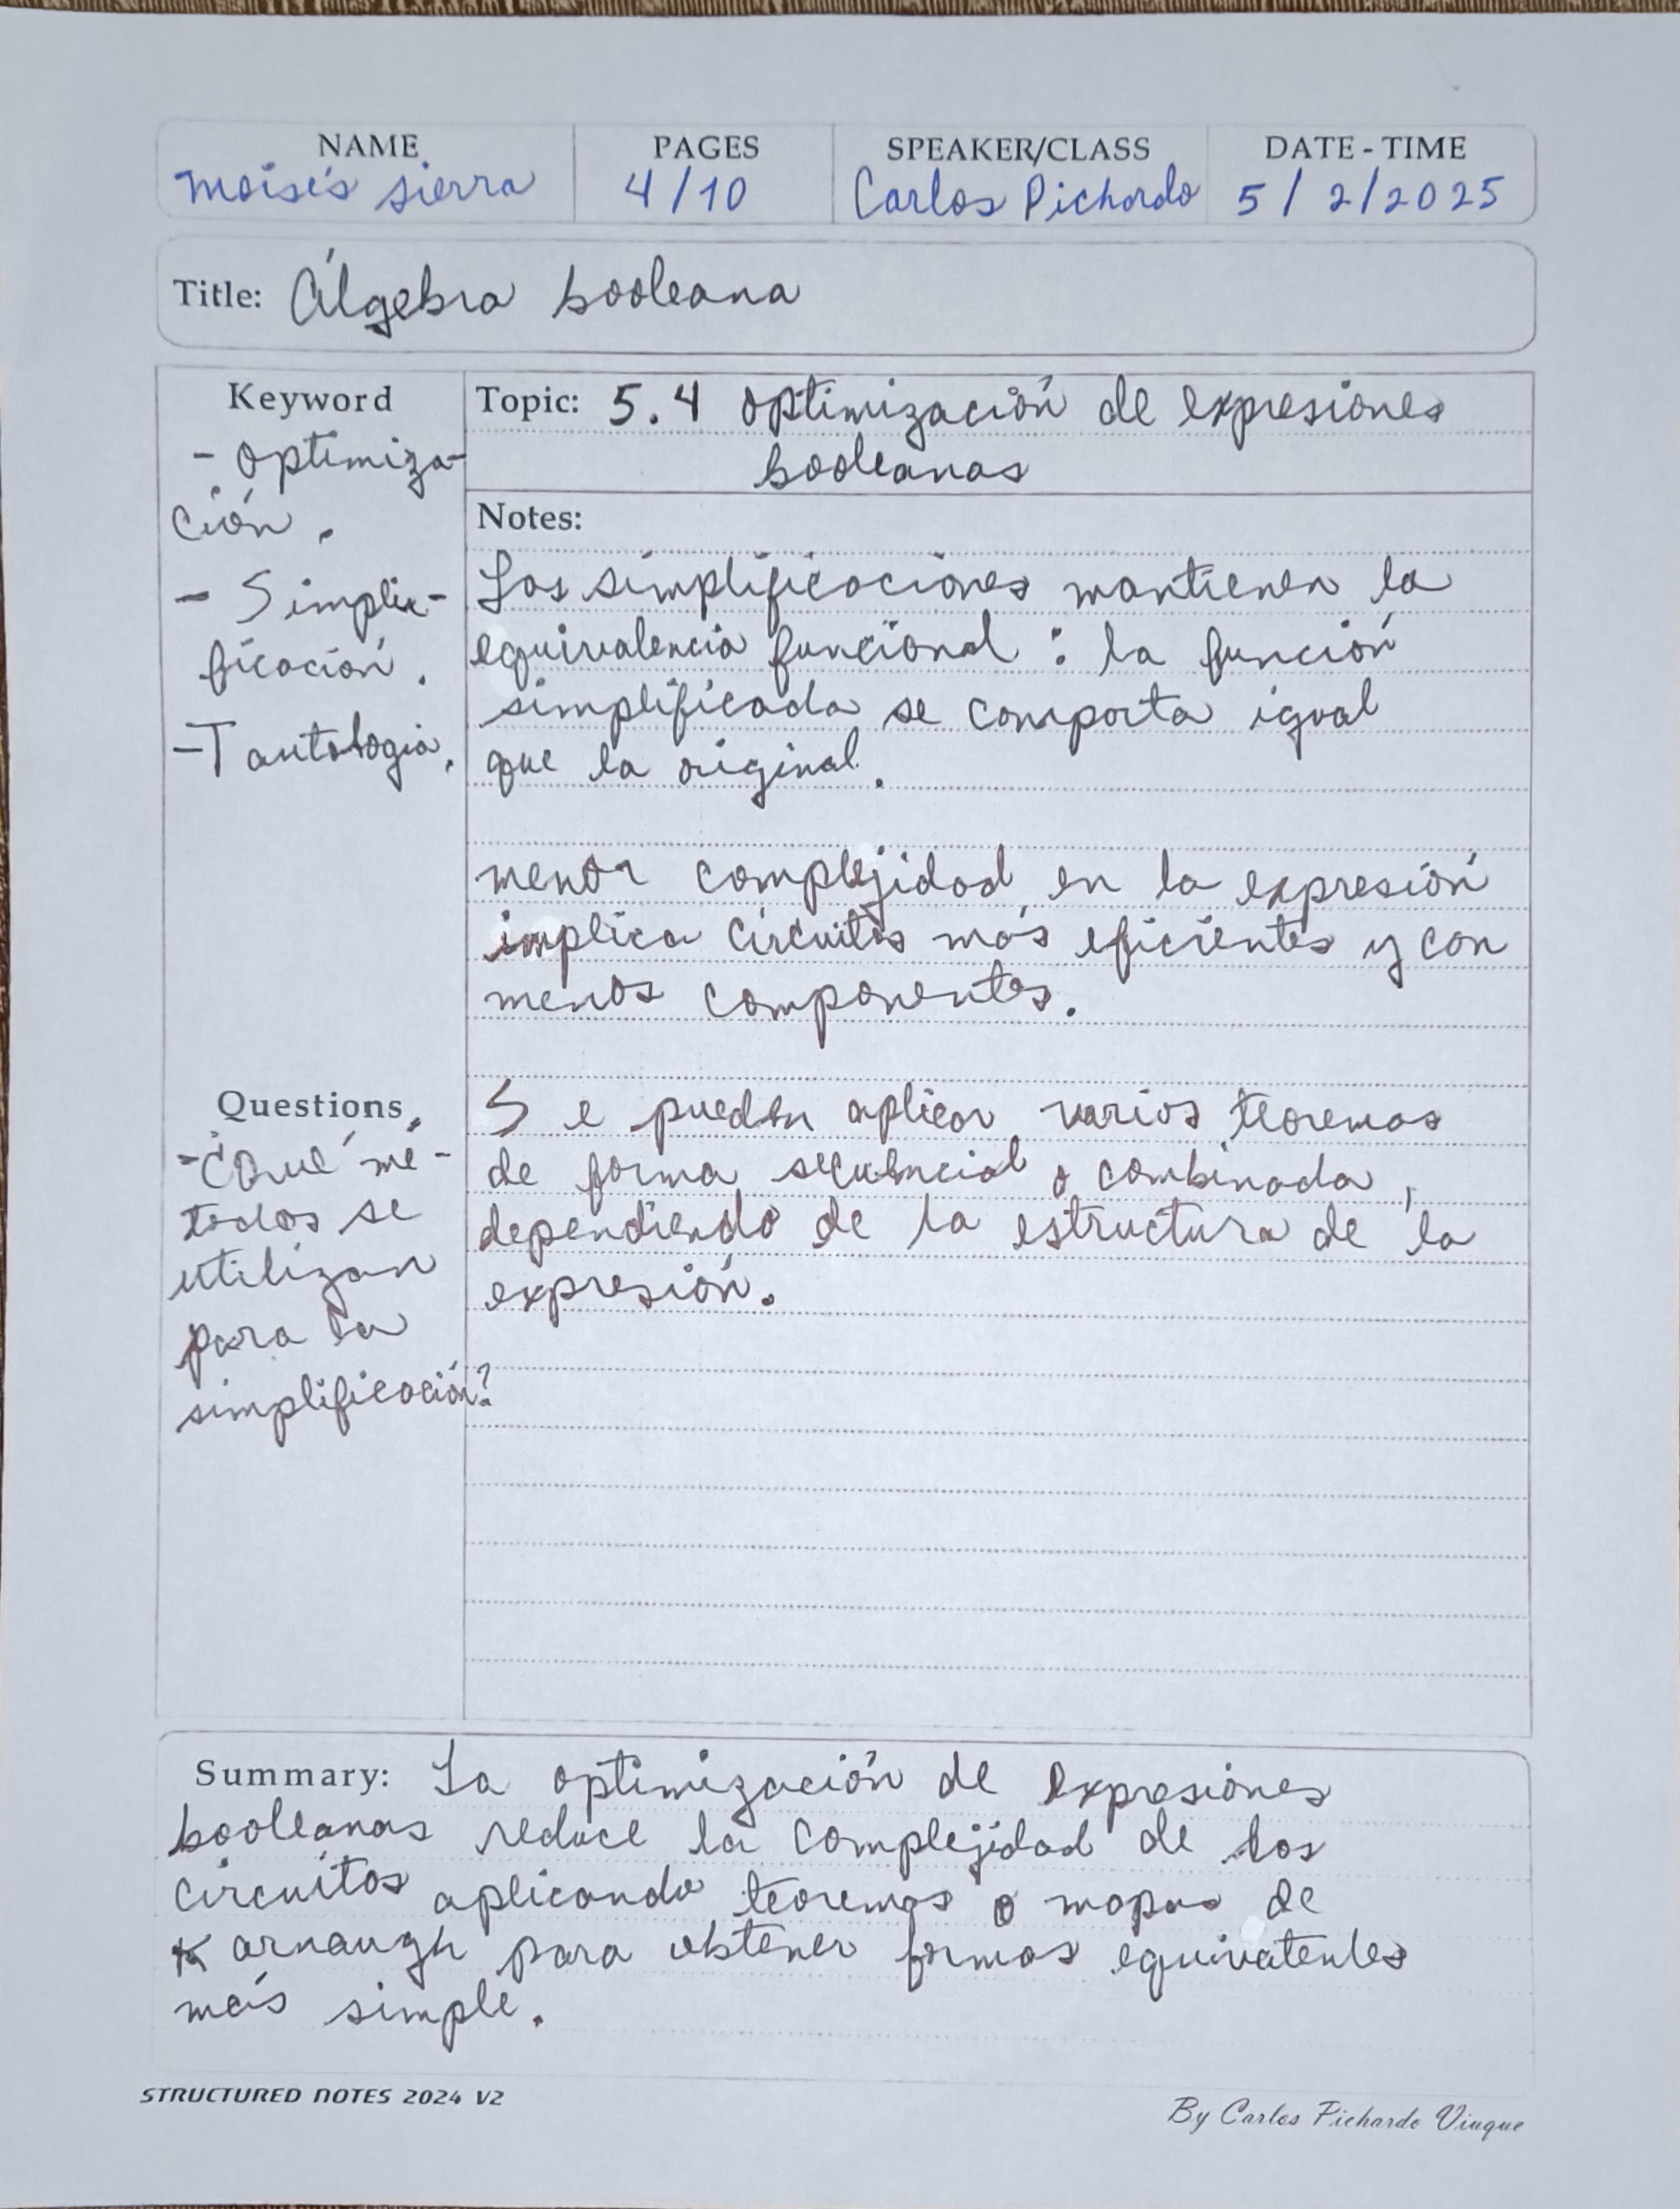 NAME PAGES SPEAKER/CLASS DATE-TIME
Moisés Sierra 4/10 Carlos Pichardo 5/2/2025
Title: Álgebra booleana
Keyword
- Optimiza-
ción.
- Simpli-
ficación.
- Tautología.
Topic: 5.4 Optimización de expresiones
booleanas
Notes:
Las simplificaciones mantienen la
equivalencia funcional: la función
simplificada se comporta igual
que la original.
menor complejidad en la expresión
implica circuitos más eficientes y con
menos componentes.
Se pueden aplicar varios teoremas
de forma secuencial o combinada,
dependiendo de la estructura de la
expresión.
Questions
- ¿Qué mé-
todos se
utilizan
para la
simplificación?
Summary: La optimización de expresiones
booleanas reduce la complejidad de los
circuitos aplicando teoremas o mapas de
Karnaugh para obtener formas equivalentes
más simple.
STRUCTURED NOTES 2024 V2
By Carlos Pichardo Viuque